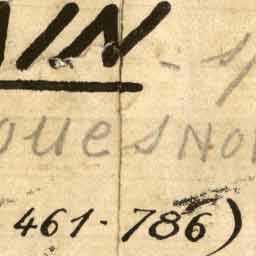 AIN - S
OUESNO
461-786)